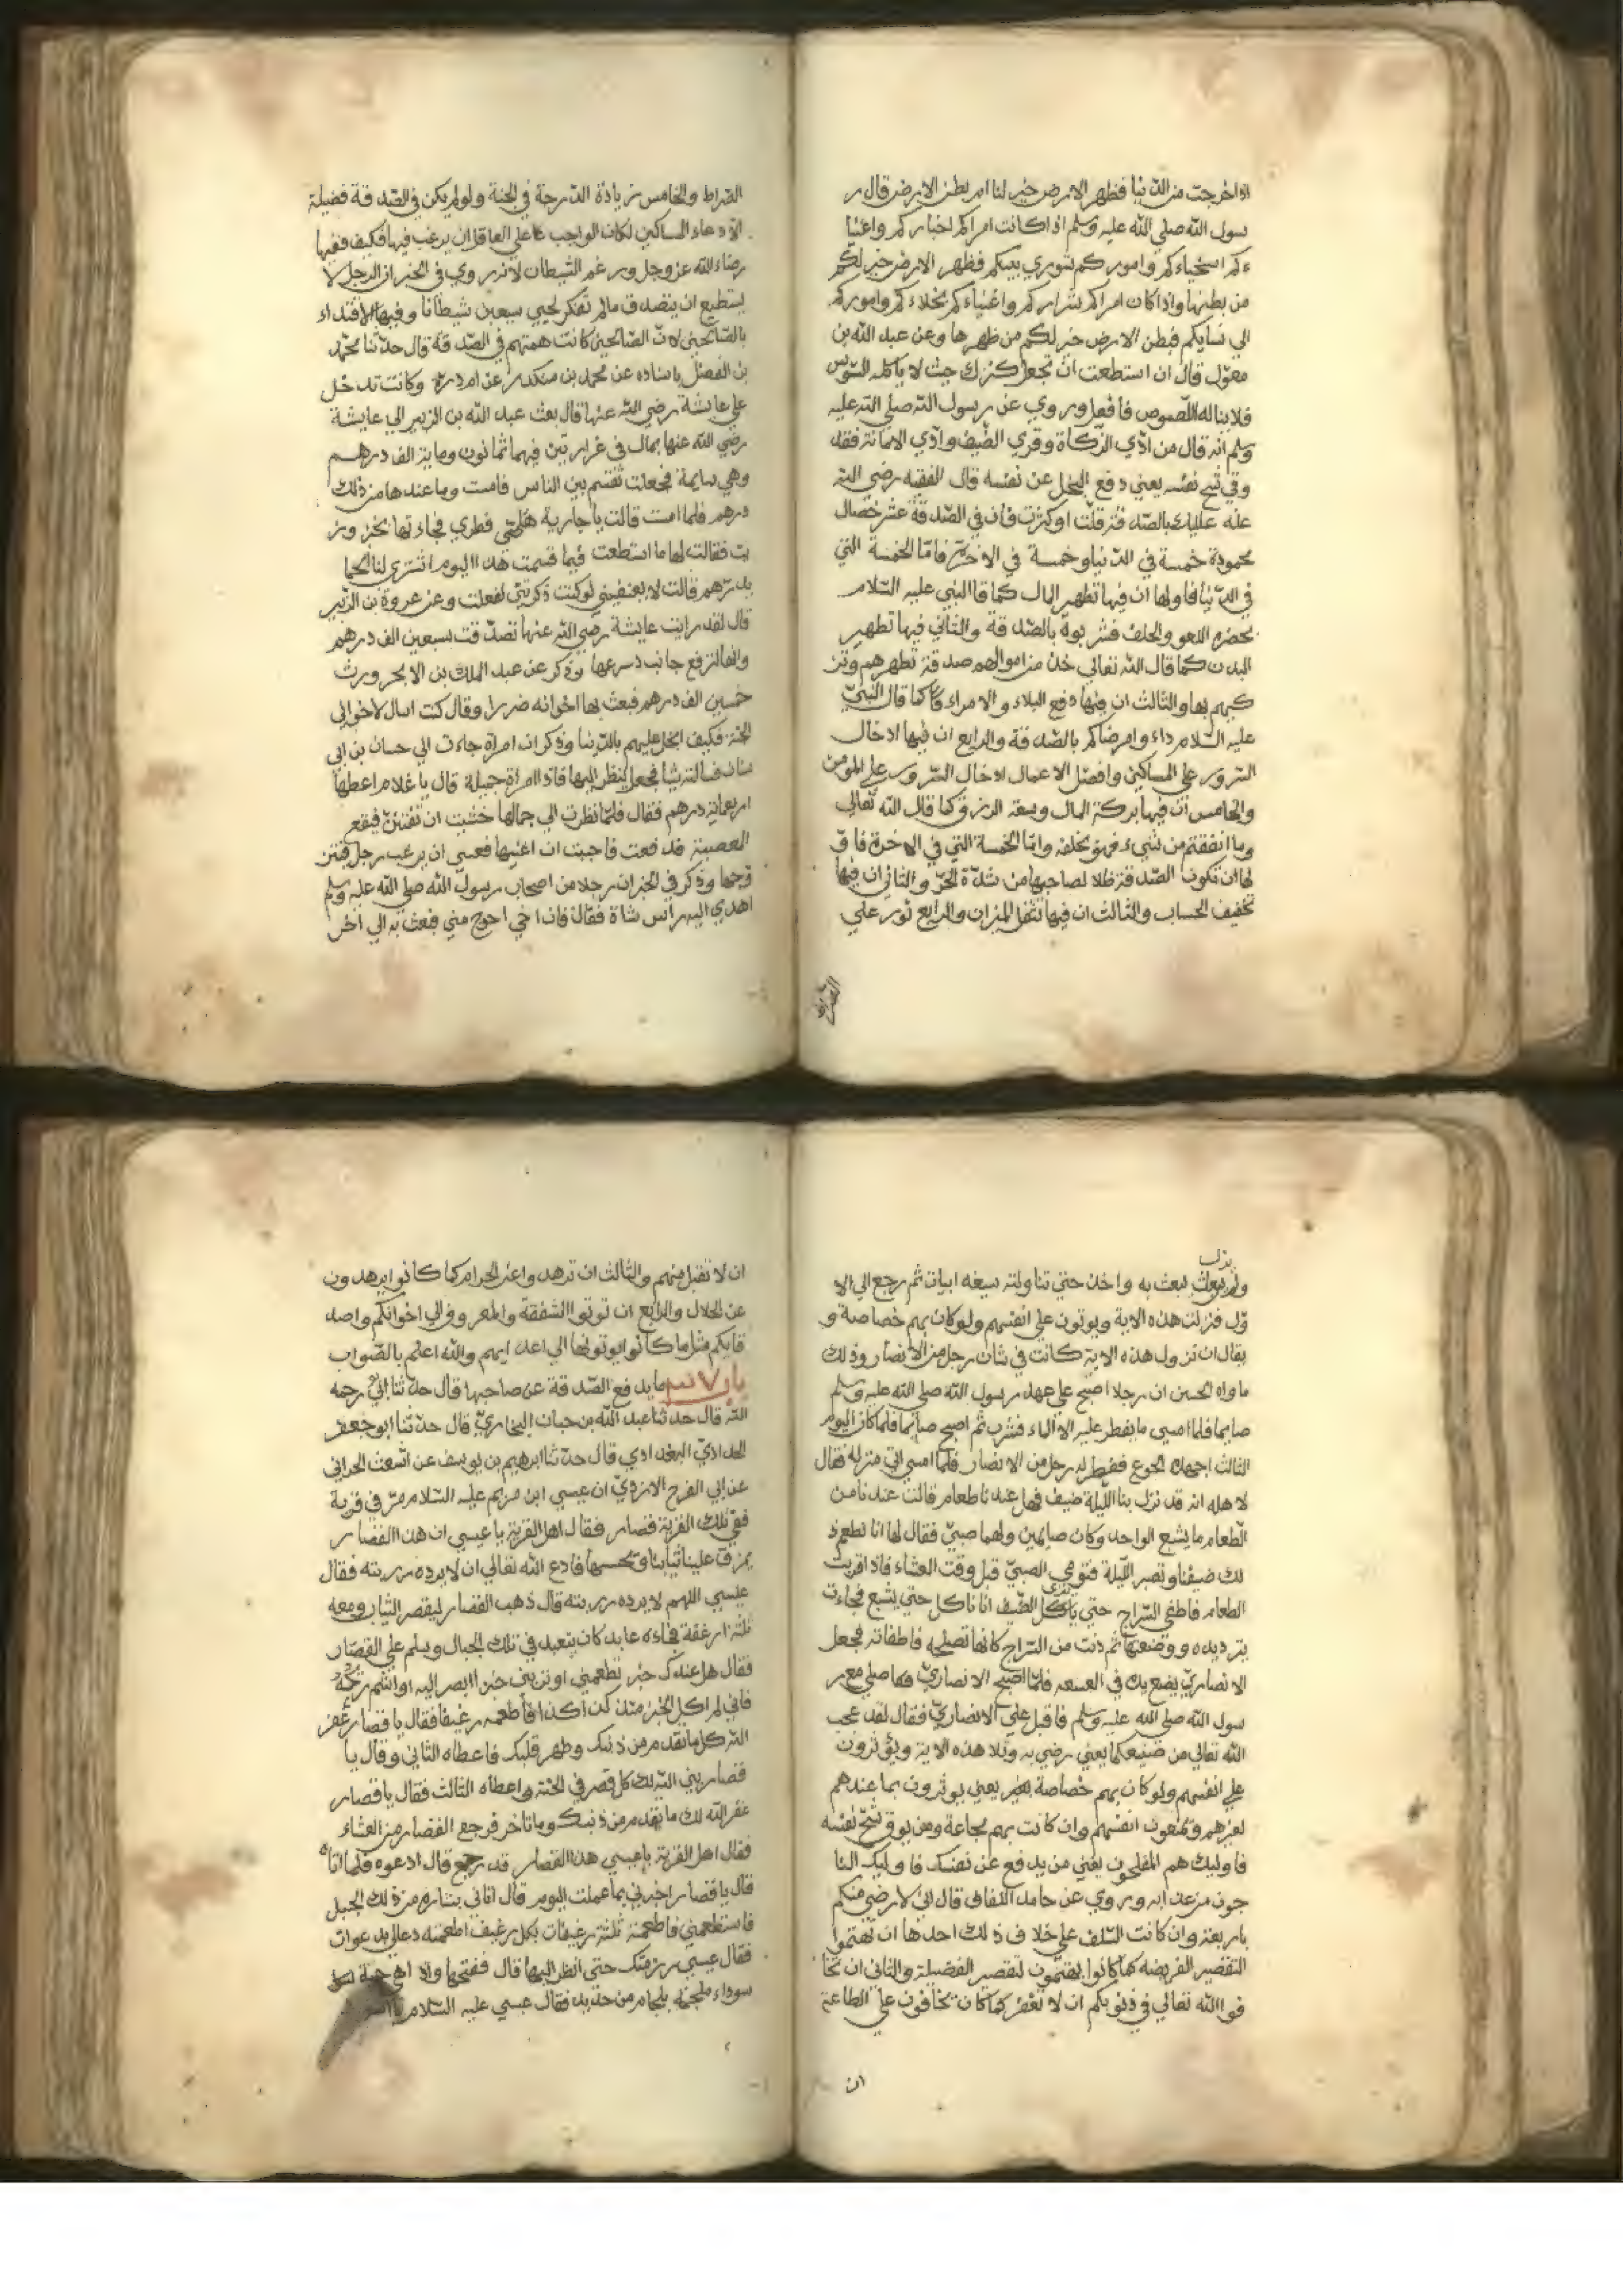 اذا خرجت من الدنيا فظهر الارض خير لنا ام بطن الارض قال ر
سول الله صلي الله عليه وسلم اذا كانت امراكم اخياركم واغنيا
ءكم اسخياءكم واموركم شوري بينكم فظهر الارض خير لكم
من بطنها واذا كان امراكم شراركم واغنياءكم بخلاءكم واموركم
الي نسايكم فبطن الارض خير لكم من ظهرها وعن عبد الله بن
معول قال ان استطعت ان تجعل كنزك حيث لا ياكله السوس
فلا يناله اللصوص فافعل وروي عن رسول الله صلي الله عليه
وسلم انه قال من ادي الزكاة وقري الضيف وادي الامانة فقد
وقي شح نفسه يعني دفع البخل عن نفسه قال الفقيه رضي الله
عنه عليك بالصدقة قلت او كثرت فان في الصدقة عشر خصال
محمودة خمسة في الدنيا وخمسة في الاخرة فاما الخمسة التي
في الدنيا فاولها ان فيها تطهير المال كما قال النبي عليه السلام
بحضره اللغو والحلف فشربوه بالصدقة والثاني فيها تطهير
البدن كما قال الله تعالي خذ من اموالهم صدقة تطهرهم وتز
كيهم بها والثالث ان فيها دفع البلاء والامراض كما قال النبي
عليه السلام داووا مرضاكم بالصدقة والرابع ان فيها ادخال
السرور علي المساكين وافضل الاعمال ادخال السرور علي المومن
والخامس ان فيها بركة المال وسعة الرزق كما قال الله تعالي
وما انفقتم من شيء فهو يخلفه واما الخمسة التي في الاخرة فاو
لها ان تكون الصدقة ظلا لصاحبها من شدة الحر والثاني ان فيها
تخفيف الحساب والثالث ان فيها تثقل الميزان والرابع نور علي
الصراط
الصراط والخامس زيادة الدرجة في الجنة ولو لم يكن في الصدقة فضيلة
الا دعاء المساكين لكان الواجب علي العاقل ان يرغب فيها فكيف ففيها
رضاء الله عز وجل ورغم الشيطان لانه روي في الخبر ان الرجل لا
يستطيع ان يتصدق ما لم تفكر لحيي سبعين شيطانا وفيها الاقتداء
بالصالحين لان الصالحين كانت همتهم في الصدقة قال حدثنا محمد
بن الفضل باسناده عن محمد بن منكدر عن ام درة وكانت تدخل
علي عايشة رضي الله عنها قال بعث عبد الله بن الزبير الي عايشة
رضي الله عنها بمال في غرارتين فيهما ثمانون وماية الف درهم
وهي صايمة فجعلت تقسم بين الناس فامست وما عندها من ذلك
درهم فلما امست قالت يا جارية هلمي فطري فجاءتها بخبز وز
يت فقالت لها ما استطعت فيما قسمت هذا اليوم ان تشتري لنا لحما
بدرهم قالت لا تعنفيني لو كنت ذكرتني لفعلت وعن عروة بن الزبير
قال لقد رايت عايشة رضي الله عنها تصدقت بسبعين الف درهم
وانها لترفع جانب درعها وذكر عن عبد الملك بن الابحر ورث
خمسين الف درهم فبعث بها اخوانه ضررا وقال كنت اسال لاخوالي
الجنة فكيف ابخل عليهم بالدنيا وذكر ان امراة جاءت الي حسان بن ابي
سنان فسالته شيا فجعل ينظر اليها فاذا امراة جميلة قال يا غلام اعطها
اربعماية درهم فقال فلما نظرت الي جمالها خشيت ان تفتتن فيقع
المعصية قد فعت فاحببت ان اغنيها فعسي ان يرغب رجل فيتز
وجها وذكر في الخبر ان رجلا من اصحاب رسول الله صلي الله عليه وسلم
اهدي اليه راس شاة فقال فان اخي احوج مني فبعث به الي اخر
يزل
ولم يبعث يبعث به واحد حتي تناولته سبعة ابيات ثم رجع الي الا
ول فنزلت هذه الاية ويوثرون علي انفسهم ولو كان بهم خصاصة و
يقال ان نزول هذه الاية كانت في شان رجل من الانصار وذلك
ما رواه الحسن ان رجلا اصبح علي عهد رسول الله صلي الله عليه وسلم
صايما فلما امسي ما يفطر عليه الا الماء فشرب ثم اصبح صايما فلما كان اليوم
الثالث اجهده الجوع ففطن له رجل من الانصار فلما امسي اتي منزله فقال
لاهله انه قد نزل بنا الليلة ضيف فهل عندنا طعام قالت عندنا من
الطعام ما يشبع الواحد وكان صايمين ولهما صبي فقال لها انا نطعم ذ
لك ضيفنا ونصبر الليلة فنومي الصبي قبل وقت العشاء فاذا قربت
الطعام فاطفي السراج حتي يري الضيف انا ناكل حتي يشبع فجاءت
بثريدة ووضعتها ثم دنت من السراج كانها تصلحه فاطفاته فجعل
الانصاري يضع يده في القصعة فلما اصبح الانصاري فصلي مع ر
سول الله صلي الله عليه وسلم فاقبل علي الانصاري فقال لقد عجب
الله تعالي من صنيعكما يعني رضي به وتلا هذه الاية ويوثرون
علي انفسهم ولو كان بهم خصاصة يعني يوثرون بما عندهم
لغيرهم ويمنعون انفسهم وان كانت بهم مجاعة ومن يوق شح نفسه
فاوليك هم المفلحون يعني من يدفع عن نفسه فاوليك النا
جون من عذابه وروي عن حامد اللفاف قال اني لارضي منكم
باربعة وان كانت السلف علي خلاف ذلك احدها ان تهتموا
لتقصير الفريضة كما كانوا يهتمون لتقصير الفضيلة والثاني ان تخا
فوا الله تعالي في ذنوبكم ان لا تغفر كما كان يخافون علي الطاعة
ان
ان لا تقبل منهم والثالث ان تزهدوا عن الحرام كما كانوا يزهدون
عن الحلال والرابع ان توتوا الشفقة والمعروف الي اخوانكم واصد
قايكم مثل ما كانوا يوتونها الي اعدايهم والله اعلم بالصواب
باب ما يدفع الصدقة عن صاحبها قال حدثنا ابي رحمه
الله قال حدثنا عبد الله بن حبان البخاري قال حدثنا ابو جعفر
الحدادي البغدادي قال حدثنا ابرهيم بن يوسف عن اشعث الحراني
عن ابي الفرح الازدي ان عيسي ابن مريم عليه السلام مر في قرية
ففي تلك القرية قصار فقال اهل القرية يا عيسي ان هذا القصار
يمزق علينا ثيابنا ويحبسها فادع الله تعالي ان لا يرده برزمته فقال
عيسي اللهم لا يرده برزمته قال ذهب القصار ليقصر الثياب ومعه
ثلثة ارغفة فجاءه عابد كان يتعبد في تلك الجبال وسلم علي القصار
فقال هل عندك خبز تطعمني او تريني حتي ابصر اليه او اشم ريحه
فاني لم اكل الخبز منذ كذا كذا فاطعمه رغيفا فقال يا قصار غفر
الله كل ما تقدم من ذنبك وطهر قلبك فاعطاه الثاني وقال يا
قصار بني الله لك كل قصر في الجنة واعطاه الثالث فقال يا قصار
غفر الله لك ما تقدم من ذنبك وما تاخر فرجع القصار من العشاء
فقال اهل القرية يا عيسي هذا القصار قد رجع قال ادعوه فلما اتاه
قال يا قصار اخبرني بما عملت اليوم قال اتاني سياره من ذلك الجبل
فاستطعمني فاطعمته ثلثة رغيفات بكل رغيف اطعمته دعا لي بدعوات
فقال عيسي رزمتك حتي انظر اليها قال ففتحها والا هي حية
سوداء ملجمة بلجام من حديد فقال عيسي عليه السلام يا اسود